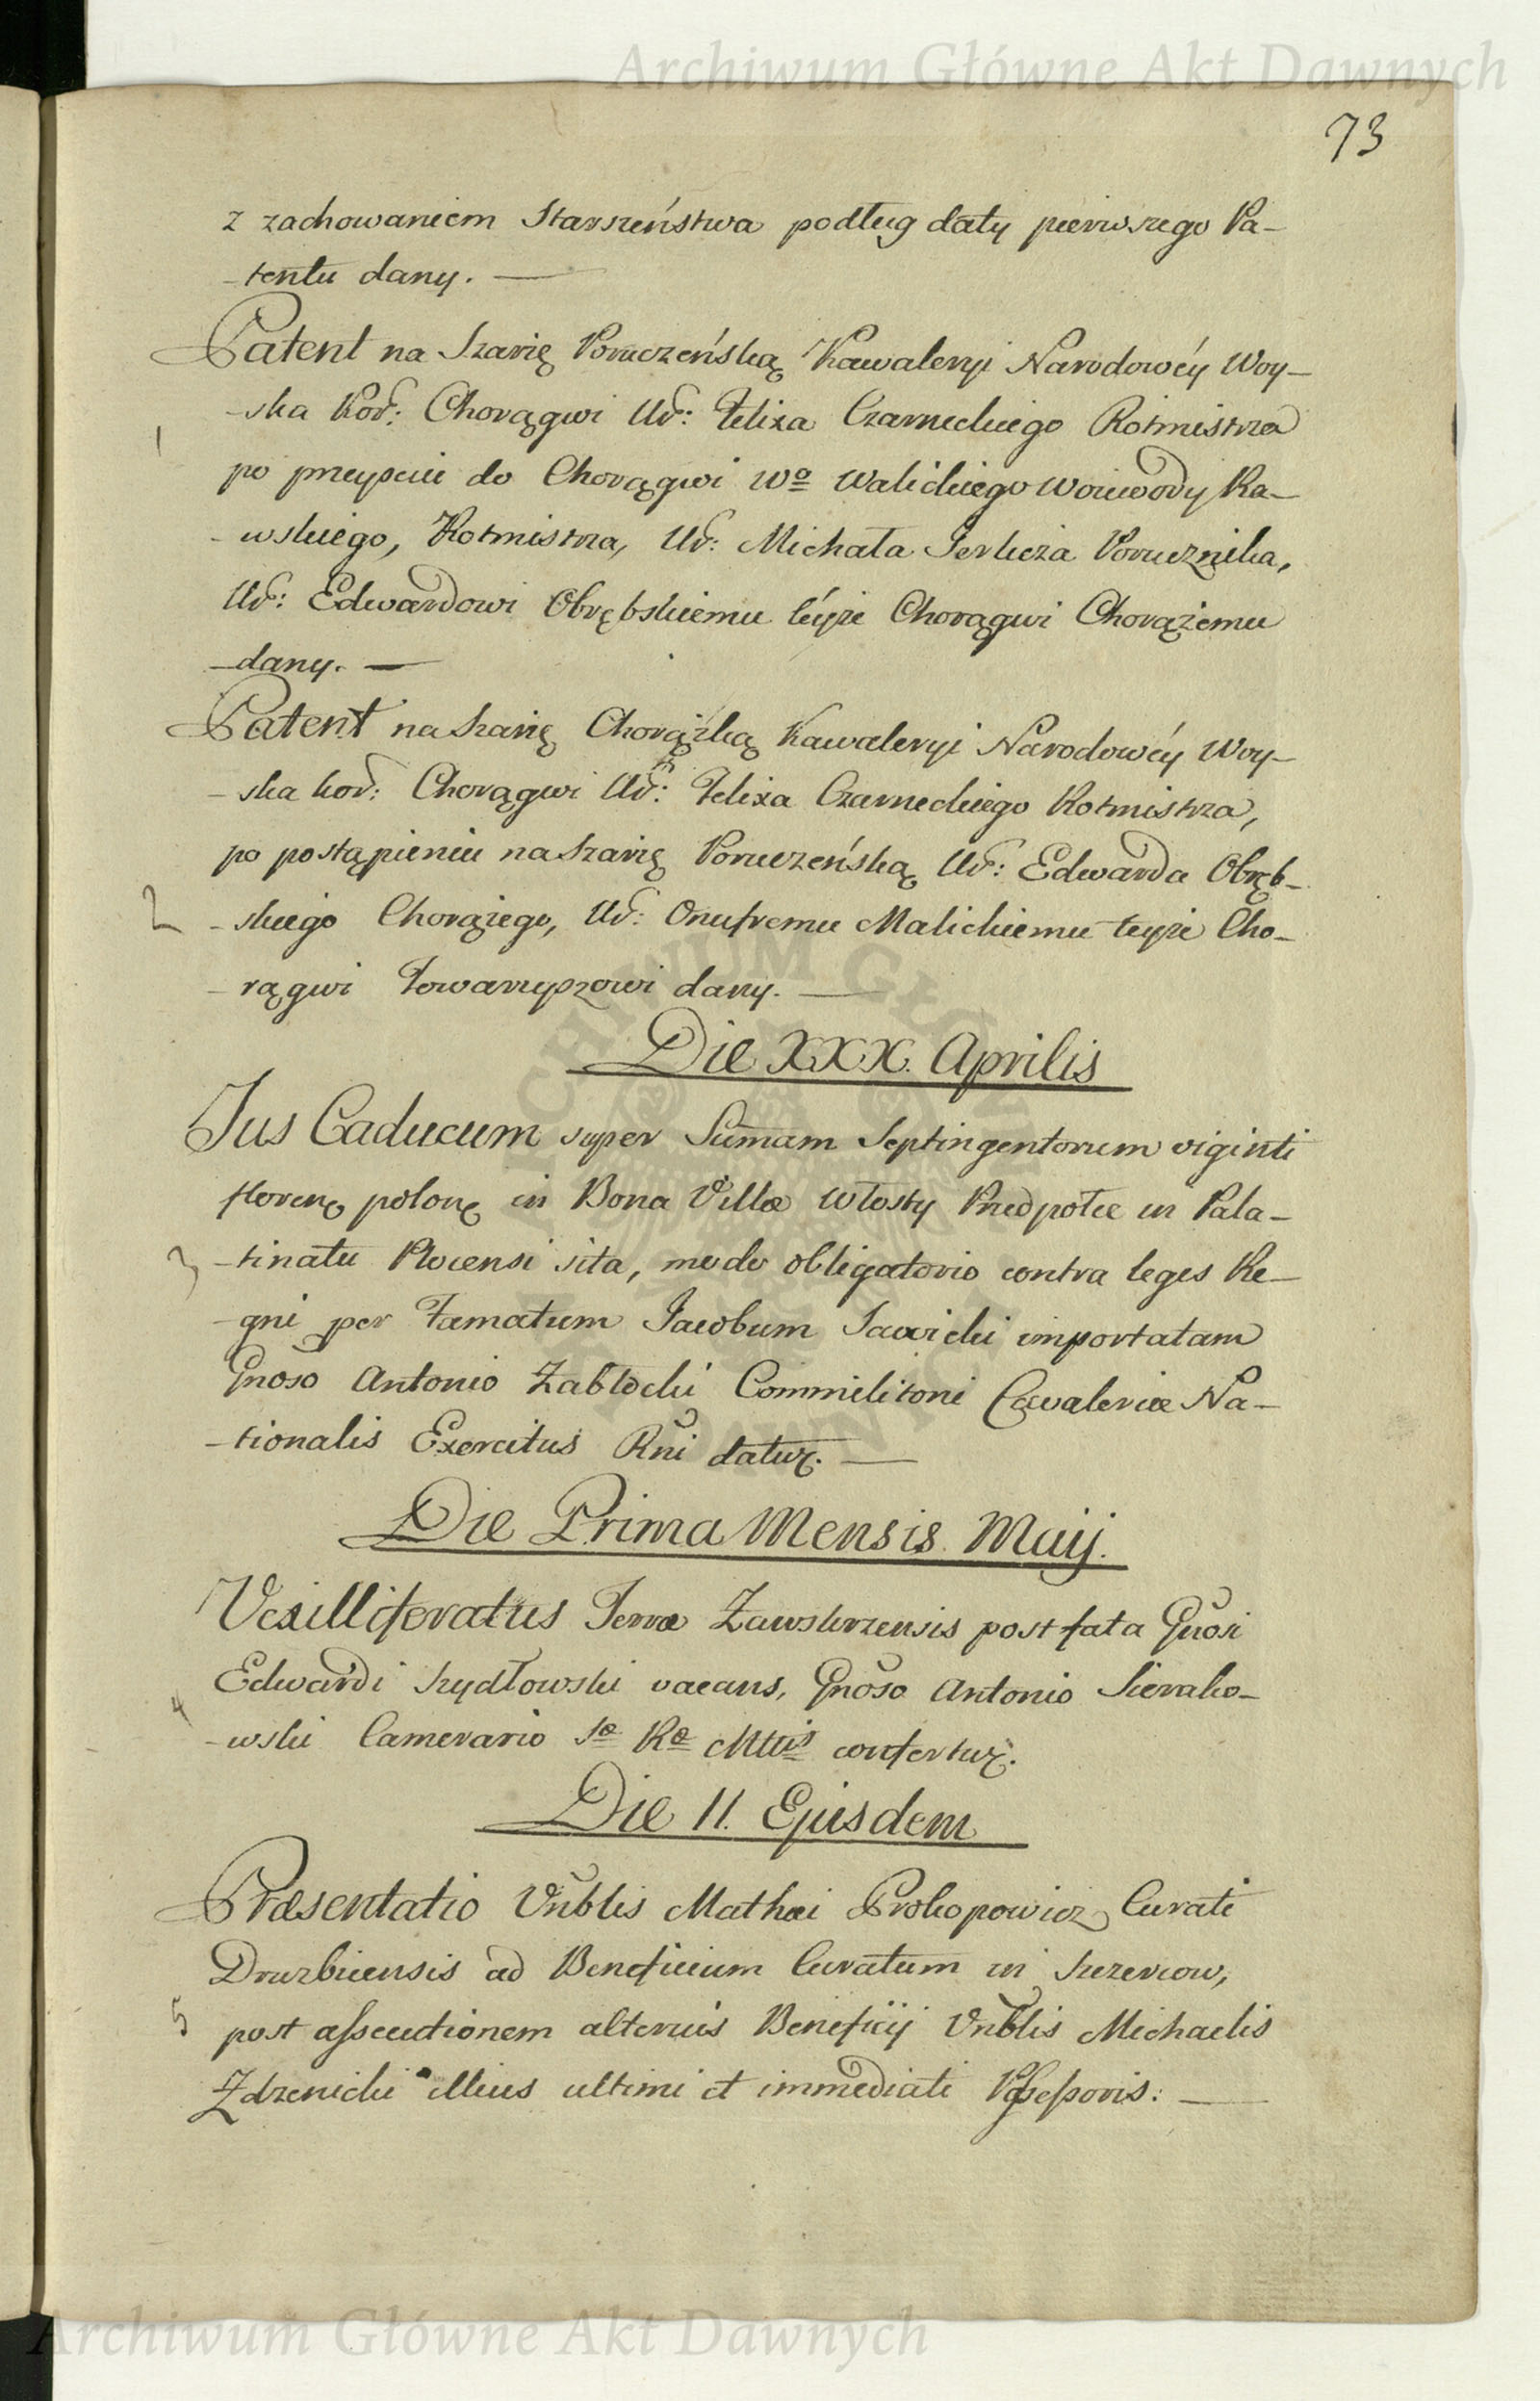 Archiwum Główne Akt Dawnych
73
z zachowaniem Starszeństwa podług daty pierwszego Pa-
-tentu dany. —
Patent na Szarżę Poruczeńską Kawaleryi Narodowéy Woy-
-ska Kor: Chorągwi Ur: Felixa Czarneckiego Rotmistrza
1
po przeyściu do Chorągwi Wo Walickiego Woiewody Ra-
-wskiego, Rotmistrza, Ur: Michała Jerlicza Porucznika,
Ur: Edwardowi Obrębskiemu téyże Chorągwi Chorążemu
-dany. —
Patent na Szarżę Chorążską Kawaleryi Narodowéy Woy-
-ska kor: Chorągwi Ur: Felixa Czarneckiego Rotmistrza,
po postąpieniu na Szarżę Poruczeńską Ur: Edwarda Obręb-
2
-skiego Chorążego, Ur: Onufremu Malickiemu teyże Cho-
-rągwi Towarzyszowi dany. —
Die XXX. Aprilis
Jus Caducum super Sumam Septingentorum viginti
floren polon in Bona Villæ Włosty Przedpołce in Pala-
3
-tinatu Plocensi sita, modo obligatorio contra leges Re-
-gni per Famatum Jacobum Sawicki importatam
Gnoso Antonio Zabłocki Commilitoni Cavaleriæ Na-
-tionalis Exercitus Rni datur. —
Die Prima Mensis Maij.
Vexilliferatus Terræ Zawskrzensis post fata Gnosi
Edwardi Szydłowski vacans, Gnoso Antonio Sierako-
4
-wski Camerario Sæ Ræ Mttis confertur.
Die 11. Ejusdem
Præsentatio Vnblis Mathæi Prokopowicz Curati
Druzbicensis ad Beneficium Curatum in Szczercow,
5
post assecutionem alterius Beneficij Vnblis Michaelis
Zdzenicki illius ultimi et immediati Possessoris: —
Archiwum Główne Akt Dawnych